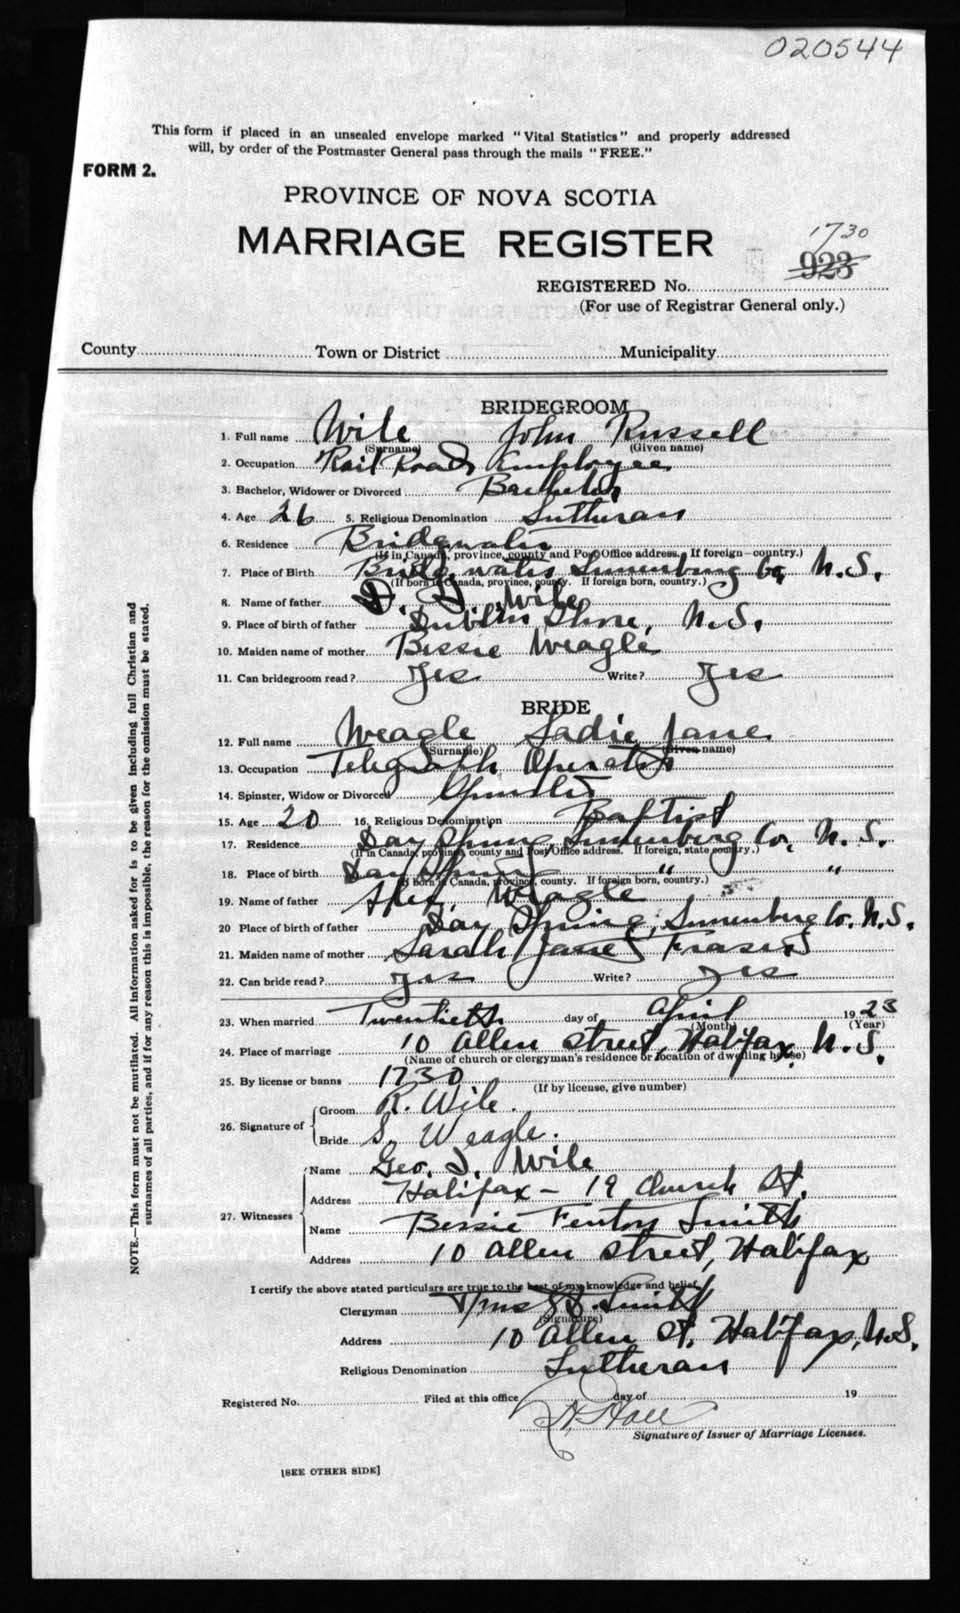 020544
This form if placed in an unsealed envelope marked "Vital Statistics" and properly addressed
will, by order of the Postmaster General pass through the mails "FREE."
FORM 2.
PROVINCE OF NOVA SCOTIA
MARRIAGE REGISTER
1730
923
REGISTERED No.
(For use of Registrar General only.)
County Town or District Municipality
BRIDEGROOM
1. Full name Wile John Russell
(Surname) (Given name)
2. Occupation Rail Road Employee
3. Bachelor, Widower or Divorced Bachelor
4. Age 26 5. Religious Denomination Lutheran
6. Residence Bridgwater
(If in Canada, province, county and Post Office address. If foreign—country.)
7. Place of Birth Bridgwater Lunenburg Co, N.S.
(If born in Canada, province, county. If foreign born, country.)
8. Name of father Wile
9. Place of birth of father Dublin Shore, N.S.
10. Maiden name of mother Bessie Weagle
11. Can bridegroom read? Yes Write? Yes
BRIDE
12. Full name Weagle Sadie Jane
(Surname) (Given name)
13. Occupation Telegraph Operator
14. Spinster, Widow or Divorced Spinster
15. Age 20 16. Religious Denomination Baptist
17. Residence Day Spring, Lunenberg Co, N.S.
(If in Canada, province, county and Post Office address. If foreign, state country.)
18. Place of birth Day Spring " "
(If born in Canada, province, county. If foreign born, country.)
19. Name of father Weagle
20 Place of birth of father Day Spring, Lunenberg Co. N.S.
21. Maiden name of mother Sarah Jane Fraser
22. Can bride read? Yes Write? Yes
23. When married Twentieth day of April 1923
(Month) (Year)
24. Place of marriage 10 Allen Street, Halifax, N.S.
(Name of church or clergyman's residence or location of dwelling house)
25. By license or banns 1730
(If by license, give number)
26. Signature of Groom R. Wile.
Bride S. Weagle.
27. Witnesses Name Geo. J. Wile
Address Halifax - 19 Church St.
Name Bessie Fenton Smith
Address 10 Allen Street, Halifax
I certify the above stated particulars are true to the best of my knowledge and belief.
Clergyman Smith
(Signature)
Address 10 Allen St, Halifax, N.S.
Religious Denomination Lutheran
Registered No. Filed at this office day of 19
Hall
Signature of Issuer of Marriage Licenses.
[SEE OTHER SIDE]
NOTE.—This form must not be mutilated. All information asked for is to be given including full Christian and
surnames of all parties, and if for any reason this is impossible, the reason for the omission must be stated.